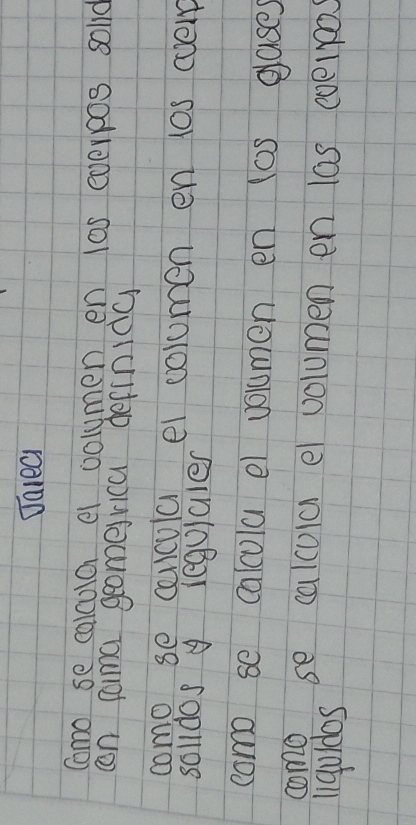 Tarea
Como se calcula el volumen en los cuerpos solid
en forma geometrica definida
como se calcula el volumen en los cuerp
solidos y regulares
como se calcula el volumen en los gases
como se calcula el volumen en los cuerpos
liquidos